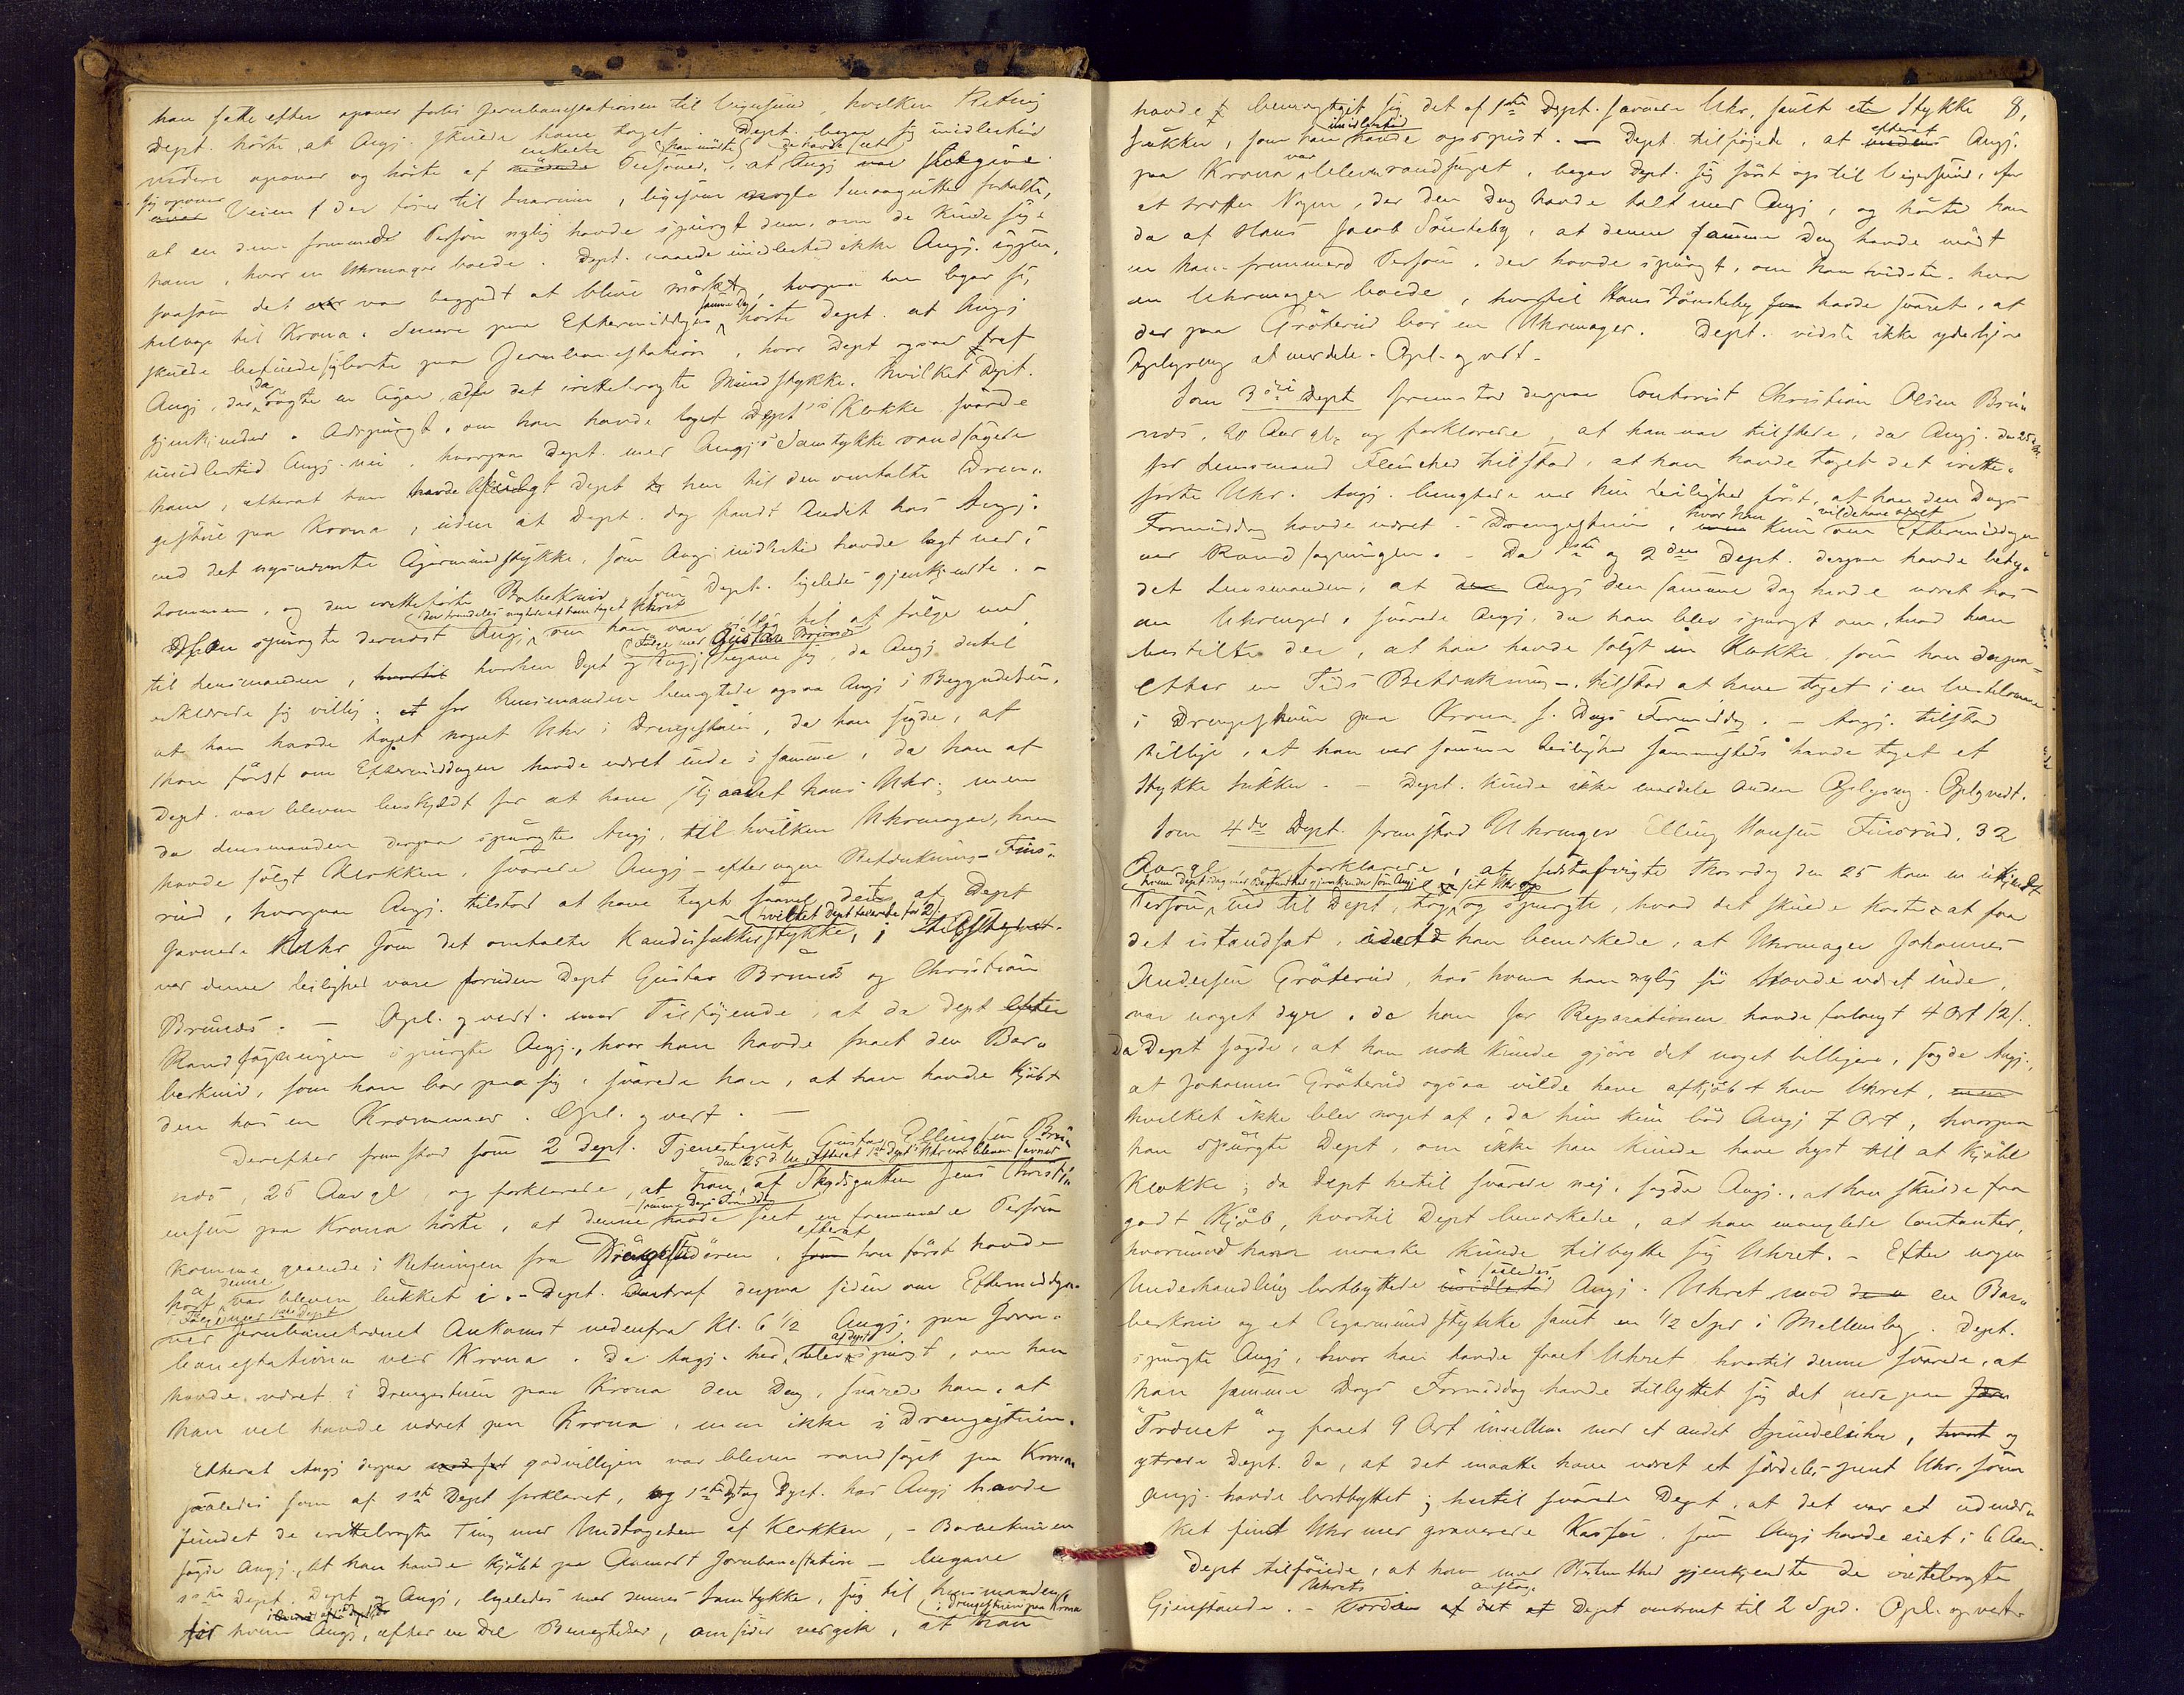 han satte efter opover forbi Jernbanestationen til Vigersund, hvilken Retning
Dept. hörte, at Angj. skulde have taget. Dept. begav sig imidlertid
videre opover og hörte af enkelte Personer, han mödte, at Angj
sig opover Veien der förer til Snarum, ligesom nogle Smaagutter fortalte,
at en dem fremmed Person nylig havde spurgt dem, om de kunde sige
ham, hvor en Uhrmager boede. Dept. naaede imidlertid ikke Angj. igjen,
saasom det var begyndt at blive mörkt, hvorpaa han begav sig
tilbage til Krona. Senere paa Eftermiddagen samme Dag hörte Dept. at Angj
skulde befinde sig borte paa Jernbanestation, hvor Dept ogsaa traf
Angj, der da rögte en Cigar af det irettebragte Mundstykke, hvilket Dept.
gjenkjender. Adspurgt, om han havde taget Dept's Klokke svarede
imidlertid Angj. nei, hvorpaa Dept. med Angj's Samtykke randsagede
ham, efterat han havde fulgt Dept hen til den omtalte Dren-
gestue paa Krona, uden at Dept. dog fandt Andet hos Angj.
end det nysnævnte Cigarmundstykke, som Angj. imidlertid havde lagt ned i
Lommen, og den iretteförte Barberkniv, som Dept. ligeledes gjenkjendte. –
Han spurgte dernæst Angj, der fremdeles negtede at have taget Uhret, om han var villig til at fölge med
til Lensmanden, hvorhen Dept og Angj i Fölge med Gustav Brunæs begave sig, da Angj dertil
erklærede sig villig; for Lensmanden benegtede ogsaa Angj i Begyndelsen,
at han havde taget noget Uhr i Drengestuen, da han sagde, at
han först om Eftermiddagen havde været inde i samme, da han af
Dept. var bleven beskyldt for at have stjaalet hans Uhr; men
da Lensmanden derpaa spurgte Angj. til hvilken Uhrmager, han
havde solgt Klokken, svarede Angj – efter nogen Betænkning – Fins-
rud, hvorpaa Angj. tilstod at have taget saavel det af Dept
savnede Uhr som det omtalte Kandissukkerstykke, hvilket Dept taxerede for 2 /. Tilstede
ved denne Leilighed vare foruden Dept Gustav Brunæs og Christian
Brunæs. – Opl. og vedt. med Tilföiende, at da Dept efter
Randsagningen spurgte Angj., hvor han havde faaet den Bar-
berkniv, som han bar paa sig, svarede han, at han havde kjöbt
den hos en Kræmmer. Opl. og vedt. –
Derefter fremstod som 2 Dept. Tjenestegut Gustav Ellingsen Bru-
næs, 25 Aar gl. og forklarede, at han, den 25 d. M., efterat 1ste Dept's Uhr var bleven savnet af Skydsgutten Jens Christi-
ansen paa Krona hörte, at denne samme Dags Formiddag havde seet en fremmed Person
komme gaaende i Retningen fra Drengestuedören, efterat han först havde
hört, at denne var bleven lukket i. – Dept. traf derpaa siden om Eftermiddagen
i Fölge med 1ste Dept ved Jernbanetrænets Ankomst nedenfra Kl. 6 1/2 Angj. paa Jern-
banestationen ved Krona. Da Angj. her blev af Dept spurgt, om han
havde været i Drengestuen paa Krona den Dag, svarede han, at
han vel havde været paa Krona, men ikke i Drengestuen.
Efterat Angj derpaa godvilligen var bleven randsaget paa Krona
saaledes som af 1ste Dept forklaret, og 1ste Dept. hos Angj havde
fundet de irettebragte Ting med Undtagelse af Klokken, – Barberkniven
sagde Angj., at han havde kjöbt paa Aamodt Jernbanestation – begave
1ste Dept. Dept og Angj, ligeledes med dennes Samtykke, sig til Lensmanden,
for hvem Angj, efter en Del Benegtelser, omsider vedgik, at han i Drengestuen paa Krona
8,
havde bemægtiget sig det af 1ste Dept. savnede Uhr, samt et Stykke
Sukker, som han imidlertid havde opspist. – Dept. tilföiede, at efterat Angj.
paa Krona var bleven randsaget, begav Dept. sig först op til Vigersund, for
at træffe Nogen, der den Dag havde talt med Angj, og hörte han
da af Hans Jacob Sönsteby, at denne samme Dag havde mödt
en ham fremmed Person, der havde spurgt, om han vidste, hvor
en Uhrmager boede, hvortil Hans Sönsteby havde svaret, at
der paa Gröterud bor en Uhrmager. Dept. vidste ikke yderligere
Oplysning at meddele. Opl. og vedt. –
Som 3die Dept fremstod derpaa Contorist Christian Olsen Bru-
næs, 20 Aar gl. og forklarede, at han var tilstede, da Angj. den 25 d. M.
for Lensmand Fleischer tilstod, at han havde taget det irette-
förte Uhr. Angj. benegtede ved hin Leilighed först, at han den Dags
Formiddag havde været i Drengestuen, hvor han kun vilde have været om Eftermiddagen
ved Randsagningen. – Da 1ste og 2den Dept. derpaa havde bety-
det Lensmanden, at Angj den samme Dag havde været hos
en Uhrmager, svarede Angj, da han blev spurgt om, hvad han
bestilte der, at han havde solgt en Klokke, som han derpaa –
efter en Tids Betænkning – tilstod at have taget i en Vestelomme
i Drengestuen paa Krona s. Dags Formiddag. – Angj. tilstod
tillige, at han ved samme Leilighed sammesteds havde taget et
Stykke Sukker. – Dept. kunde ikke meddele anden Oplysning. Opl. og vedt.
Som 4de Dept. fremstod Uhrmager Elling Hansen Finsrud, 32
Aar gl. og forklarede, at sidstafvigte Thorsdag den 25 kom en ukjendt
Person, hvem Dept idag med Bestemthed gjenkjender som Angj. ind til Dept, tog sit Uhr op og spurgte, hvad det skulde koste at faa
det istandsat, idet han bemærkede, at Uhrmager Johannes
Andersen Gröterud, hos hvem han nylig för havde været inde,
var noget dyr, da han for Reparationen havde forlangt 4 Ort 12 /.
Da Dept sagde, at han nok kunde gjöre det noget billigere, sagde Angj.,
at Johannes Gröterud ogsaa vilde have afkjöbt ham Uhret,
hvilket ikke blev noget af, da hin kun böd Angj 7 Ort, hvorpaa
han spurgte Dept, om ikke han kunde have Lyst til at kjöbe
Klokke; da Dept hertil svarede nej, sagde Angj., at han skulde faa
godt Kjöb, hvortil Dept bemærkede, at han manglede Contanter,
hvorimod han maaske kunde tilbytte sig Uhret. – Efter nogen
Underhandling bortbyttede saaledes Angj. Uhret mod en Bar-
berkniv og et Cigarmundstykke samt en 1/2 Spd i Mellemlag. Dept.
spurgte Angj, hvor han havde faaet Uhret, hvortil denne svarede, at
han samme Dags Formiddag havde tilbyttet sig det nede paa
"Trænet" og faaet 9 Ort imellem mod et andet Spindeluhr, og
ytrede Dept. da, at det maatte have været et særdeles pent Uhr, som
Angj. havde bortbyttet; hertil svarede Dept, at det var et udmær-
ket fint Uhr med graverede Kasser, som Angj havde eiet i 6 Aar.
Dept tilföiede, at han med Bestemthed gjenkjendte de irettebragte
Gjenstande. – Uhrets Værdi ansloges af Dept omtrent til 2 Spd. Opl. og vedt.